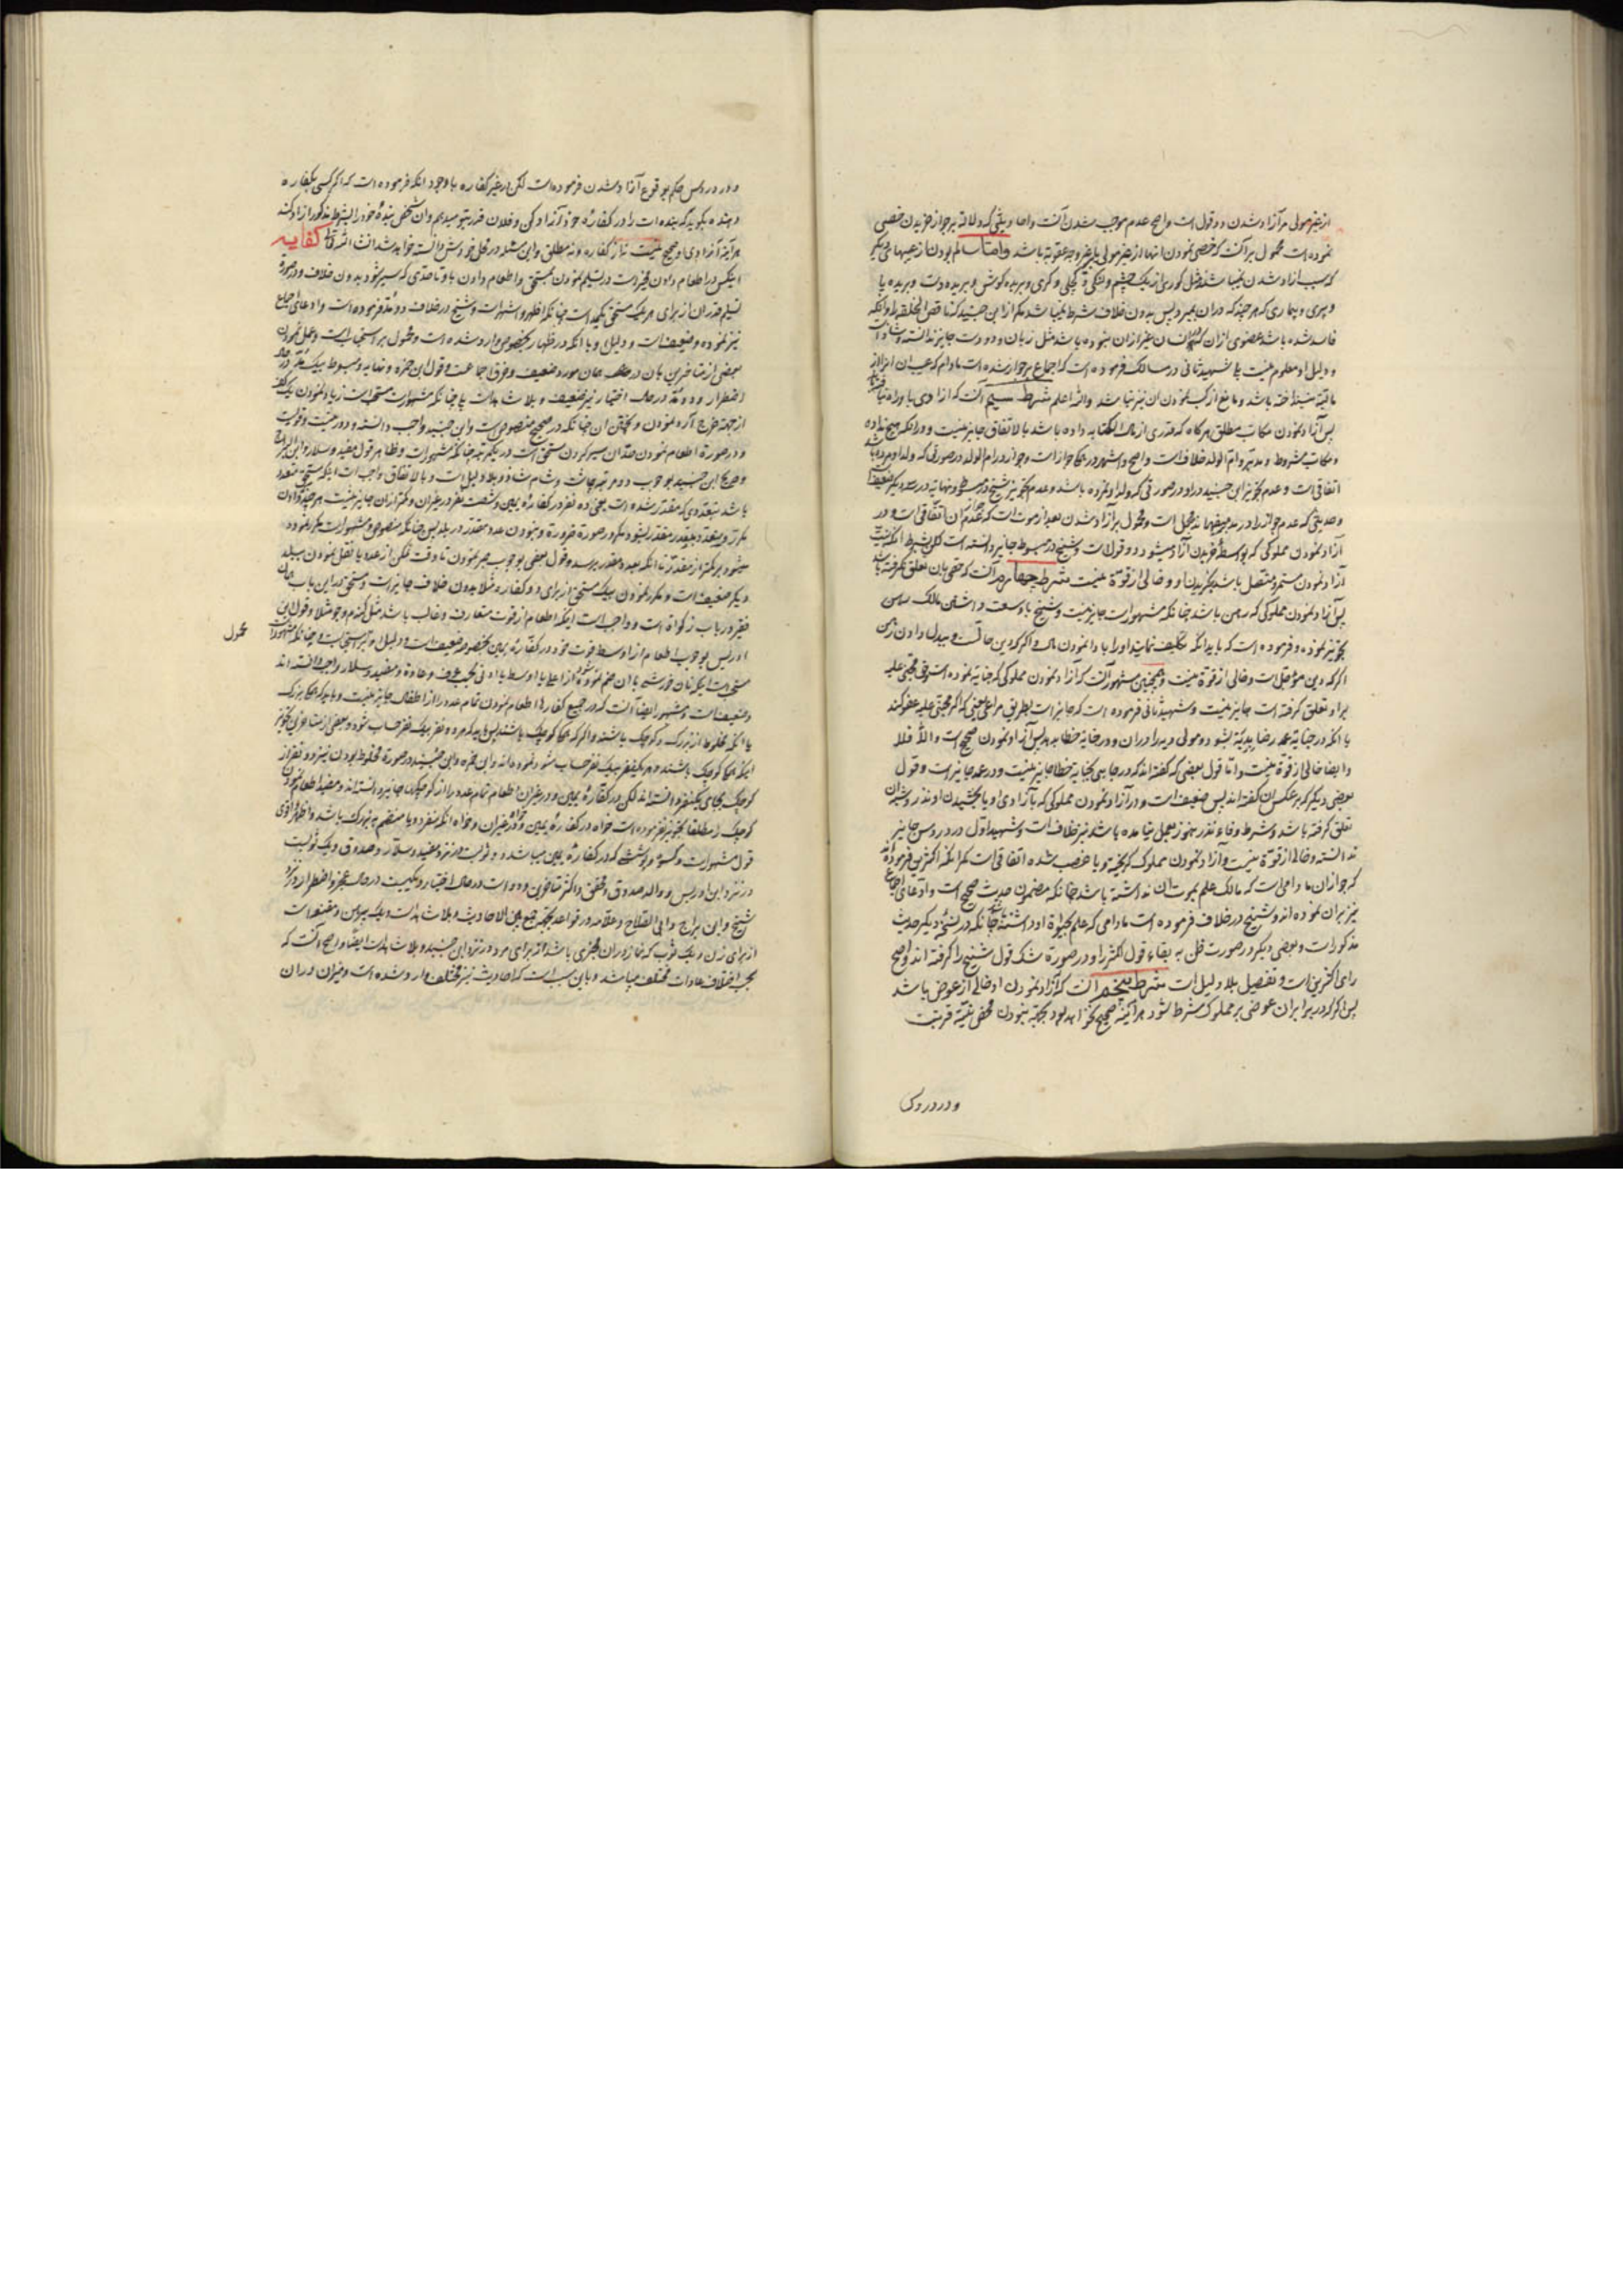 از غیر مولی مر آزاد شدن دو قول است واضح عدم موجب شدن آنست واما حدیثی که دلالة بر جواز خریدن خصی
نموده است محمول بر آنست که خصی نمودن انها از غیر مولی یا بغیر وجه عقوبة باشد واما سالم بودن از عیبهای دیگر
که سبب ازاد شدن نمیباشند مثل کوری از یک چشم ولنگی و کچلی و کری وبریده گوش وبریده دست وبریده پا
وپیری وبیماری که هر چند که در ان بمیرد پس بدون خلاف شرط نمیباشد مکر ابن جنید که ناقص الخلقه را وانکه
فاسد شده باشد عضوی از ان که انسان غیر از ان نبوده باشد مثل زبان ودو دست جایز ندانسته
ودلیل او معلوم نیست بل شهید ثانی در مسالک فرموده است که اجماع بر جواز شده است مادام که عیب ان
باشد ومانع از کسب نمودن ان نیز نباشد والله اعلم شرط سیم آنست که ازادی با وراه نیافته
پس آزاد نمودن مکاتب مطلق هرگاه که قدری از مال الکتابه داده باشد بالاتفاق جایز نیست ودر انکه هیچ نداده
ومکاتب مشروط ومدبر وام الولد خلافست واصح واشهر در همکی جواز است وجواز در ام الولد در صورتی که ولد او مرده باشد
اتفاقی است وعدم تجویز ابن جنید در او در صورتی که ولد او نمرده باشد وعدم تجویز شیخ در مبسوط ونهایه در
وحدیثی که عدم جواز را در مدبر میفهماند مجمل است ومحمول بر آزاد شدن بعد از موت است که عدم ان اتفاقی است ودر
آزاد نمودن مملوکی که بواسطه خریدن آزاد میشود دو قولست وشیخ در مبسوط جایز دانسته است لکن بشرط انکه نیت
آزاد نمودن مستمر ومتصل باشد بخریدن او وخالی از قوة نیست شرط چهارم آنست که حقی بان تعلق نگرفته باشد
پس آزاد نمودن مملوکی که رهن باشد چنانکه مشهور است جایز نیست وشیخ با وسعت داشتن مالک
تجویز نموده وفرموده است که باید انکه تکلیف نمایند او را بادا نمودن مال واگر که دین حالست وببدل دادن رهن
اگر که دین مؤجل است وخالی از قوة نیست وهمچنین مشهور آنست که آزاد نمودن مملوکی که جنایة نموده است وحق مجنی علیه
بر او تعلق گرفته است جایز نیست وشهید ثانی فرموده است که جایز است بطریق مراعی یعنی که اگر مجنی علیه عفو کند
با انکه در جنایة عمد رضا بدیة بشود ومولی وبدهد او را ودر جنایة خطا بدهد پس آزاد نمودن صحیح است والا فلا
وایضا خالی از قوة نیست واما قول بعضی که گفته اند که در جانی بجنایة خطا جایز نیست ودر عمد جایز است وقول
بعضی دیگر که بر عکس ان گفته اند پس ضعیفست ودر آزاد نمودن مملوکی که بآزادی او یا بخشیدن او نذر
تعلق گرفته باشد وشرط وفاء نذر هنوز بعمل نیامده باشد نیز خلافست وشهید اول در دروس جایز
ندانسته وخالی از قوة نیست وآزاد نمودن مملوک گریخته ویا غصب شده اتفاقی است مکر انکه اکثرین فرموده اند
که جواز ان مادامی است که مالک علم بموت ان نداشته باشد چنانکه مضمون حدیث صحیح است وادعای اجماع
نیز بر ان نموده اند وشیخ در خلاف فرموده است مادامی که علم بحیوة او داشته باشد چنانکه در نسخه دیگر حدیث
مذکور است وبعضی دیگر در صورت ظن به بقاء قول اکثر را ودر صورة شک قول شیخ را گرفته اند واصح
رای اکثرین است وتفصیل بلا دلیل است شرط پنجم آنست که آزاد نمودن او خالی از عوض باشد
پس اگر که در برابر ان عوضی بر مملوک شرط شود هر آینه صحیح نخواهد بود بجهة نبودن محض نیة قربت
ودر دروس
ودر دروس حکم بوقوع آزاد شدن فرموده است لکن در غیر کفاره با وجود انکه فرموده است که اگر کسی
دهنده بگوید که بنده ات را در کفاره خود آزاد کن وفلان قدر بتو میدهم وان شخص بنده خود را بشرط مذکور ازاد کند
هر آینه آزادی او صحیح نیست نه از کفاره ونه مطلق واین مسئله در محل خودش دانسته خواهد شد انشاء الله تعالی کفایه
اینکس در اطعام دادن مخیر است در تسلیم نمودن بمستحق واطعام دادن باو تا حدی که سیر شود بدون خلاف ودر صورة
تسلیم قدر ان از برای هر یک مستحق یکمد است چنانکه اظهر واشهر است وشیخ در خلاف دو مد فرموده است وادعای اجماع
نیز نموده وضعیفست ودلیل او با انکه در ظهار بخصوص وارد شده است ومحمول بر استحباب است وعمل نمودن
بعضی از متاخرین بان در همان مورد ضعیف وخرق اجماعست وقول ابن حمزه ونهایه ومبسوط بیک مد در حال
اضطرار ودو مد در حال اختیار نیز ضعیف وبلا شاهد است بلی چنانکه مشهور است مستحب است زیاد نمودن یک
از جهة خرج آرد نمودن وپختن ان چنانکه در صحیح منصوص است وابن جنید واجب دانسته ودور نیست
ودر صورة اطعام نمودن مقدار سیر کردن مستحق است در یکمرتبه چنانکه مشهور است وظاهر قول مفید وسلار وابن براج
وصریح ابن جنید بوجوب دو مرتبه چاشت وشام شاذ وبلا دلیل است وبالاتفاق واجب است اینکه مستحق متعدد
باشد بتعددی که مقدر شده است یعنی ده نفر در کفاره یمین وشصت نفر در غیر ان وکمتر از ان جایز نیست هر چند که
مکرر ومتعدد بقدر مقدر بشود مکر در صورة ضرورة ونبودن عدد مقدر در بلد پس چنانکه منصوص ومشهور است مکرر نموده
میشود بر کمتر از مقدر تا انکه بعدد مقدر برسد وقول بعضی بوجوب صبر نمودن تا وقت تمکن از عدد یا نقل نمودن ببلد
دیگر ضعیفست ومکرر نمودن بیک مستحق از برای دو کفاره مثلا بدون خلاف جایز است ومستحق در این باب همان
فقیر در باب زکواة است وواجب است اینکه اطعام از قوت متعارف وغالب باشد مثل گندم وجو مثلا وقول ابن
ادریس بوجوب اطعام از اوسط قوت خود در کفاره یمین بخصوصه ضعیفست ودلیل او بر استحباب وچنانکه مشهور است
محمول
مستحب است اینکه نان خورشی با ان ضم نموده شود از اعلی یا اوسط یا ادنی بحسب عرف وعادة ومفید وسلار واجب دانسته اند
وضعیفست ومشهور ایضا آنست که در جمیع کفارات اطعام نمودن تمام عدد را از اطفال جایز نیست وباید که همکی بزرک
یا انکه مخلوط از بزرک وکوچک باشند واگر که همکی کوچک باشند پس باید که هر دو نفر بیک نفر حساب شود وبعضی از متاخرین تجویز
اینکه همکی کوچک باشند وهر یکنفر بیک نفر حساب شود نموده اند وابن حمزه وابن جنید در صورة مخلوط بودن نیز دو نفر از
کوچک بجای یکنفر دانسته اند لکن در کفاره یمین ودر غیر ان اطعام تمام عدد را از کوچکها جایز دانسته اند ومفید اطعام نمودن
کوچک را مطلقا تجویز نفرموده است خواه در کفاره یمین وخواه در غیر ان وخواه انکه منفرد ویا منضم به بزرک باشد واظهر واقوی
قول مشهور است وکسوة وپوشش که در کفاره یمین میباشد دو ثوبست در نزد مفید وسلار وصدوق ویک ثوبست
در نزد ابن ادریس ووالد صدوق ومحقق واکثر متاخرین ودو است در حال اختیار ویکیست در حال عجز واضطرار در نزد
شیخ وابن براج وابی الصلاح وعلامه در قواعد بجهة جمع بین الاحادیث وبلا شاهد است ویک پیراهن ومقنعه است
از برای زن ویک ثوب که نماز در ان مجزی باشد از برای مرد در نزد ابن جنید وبلا شاهد است ایضا واصح آنست که
بحسب اختلاف عادات مختلف میباشد وباین سبب است که احادیث نیز مختلف وارد شده است ومیزان در ان